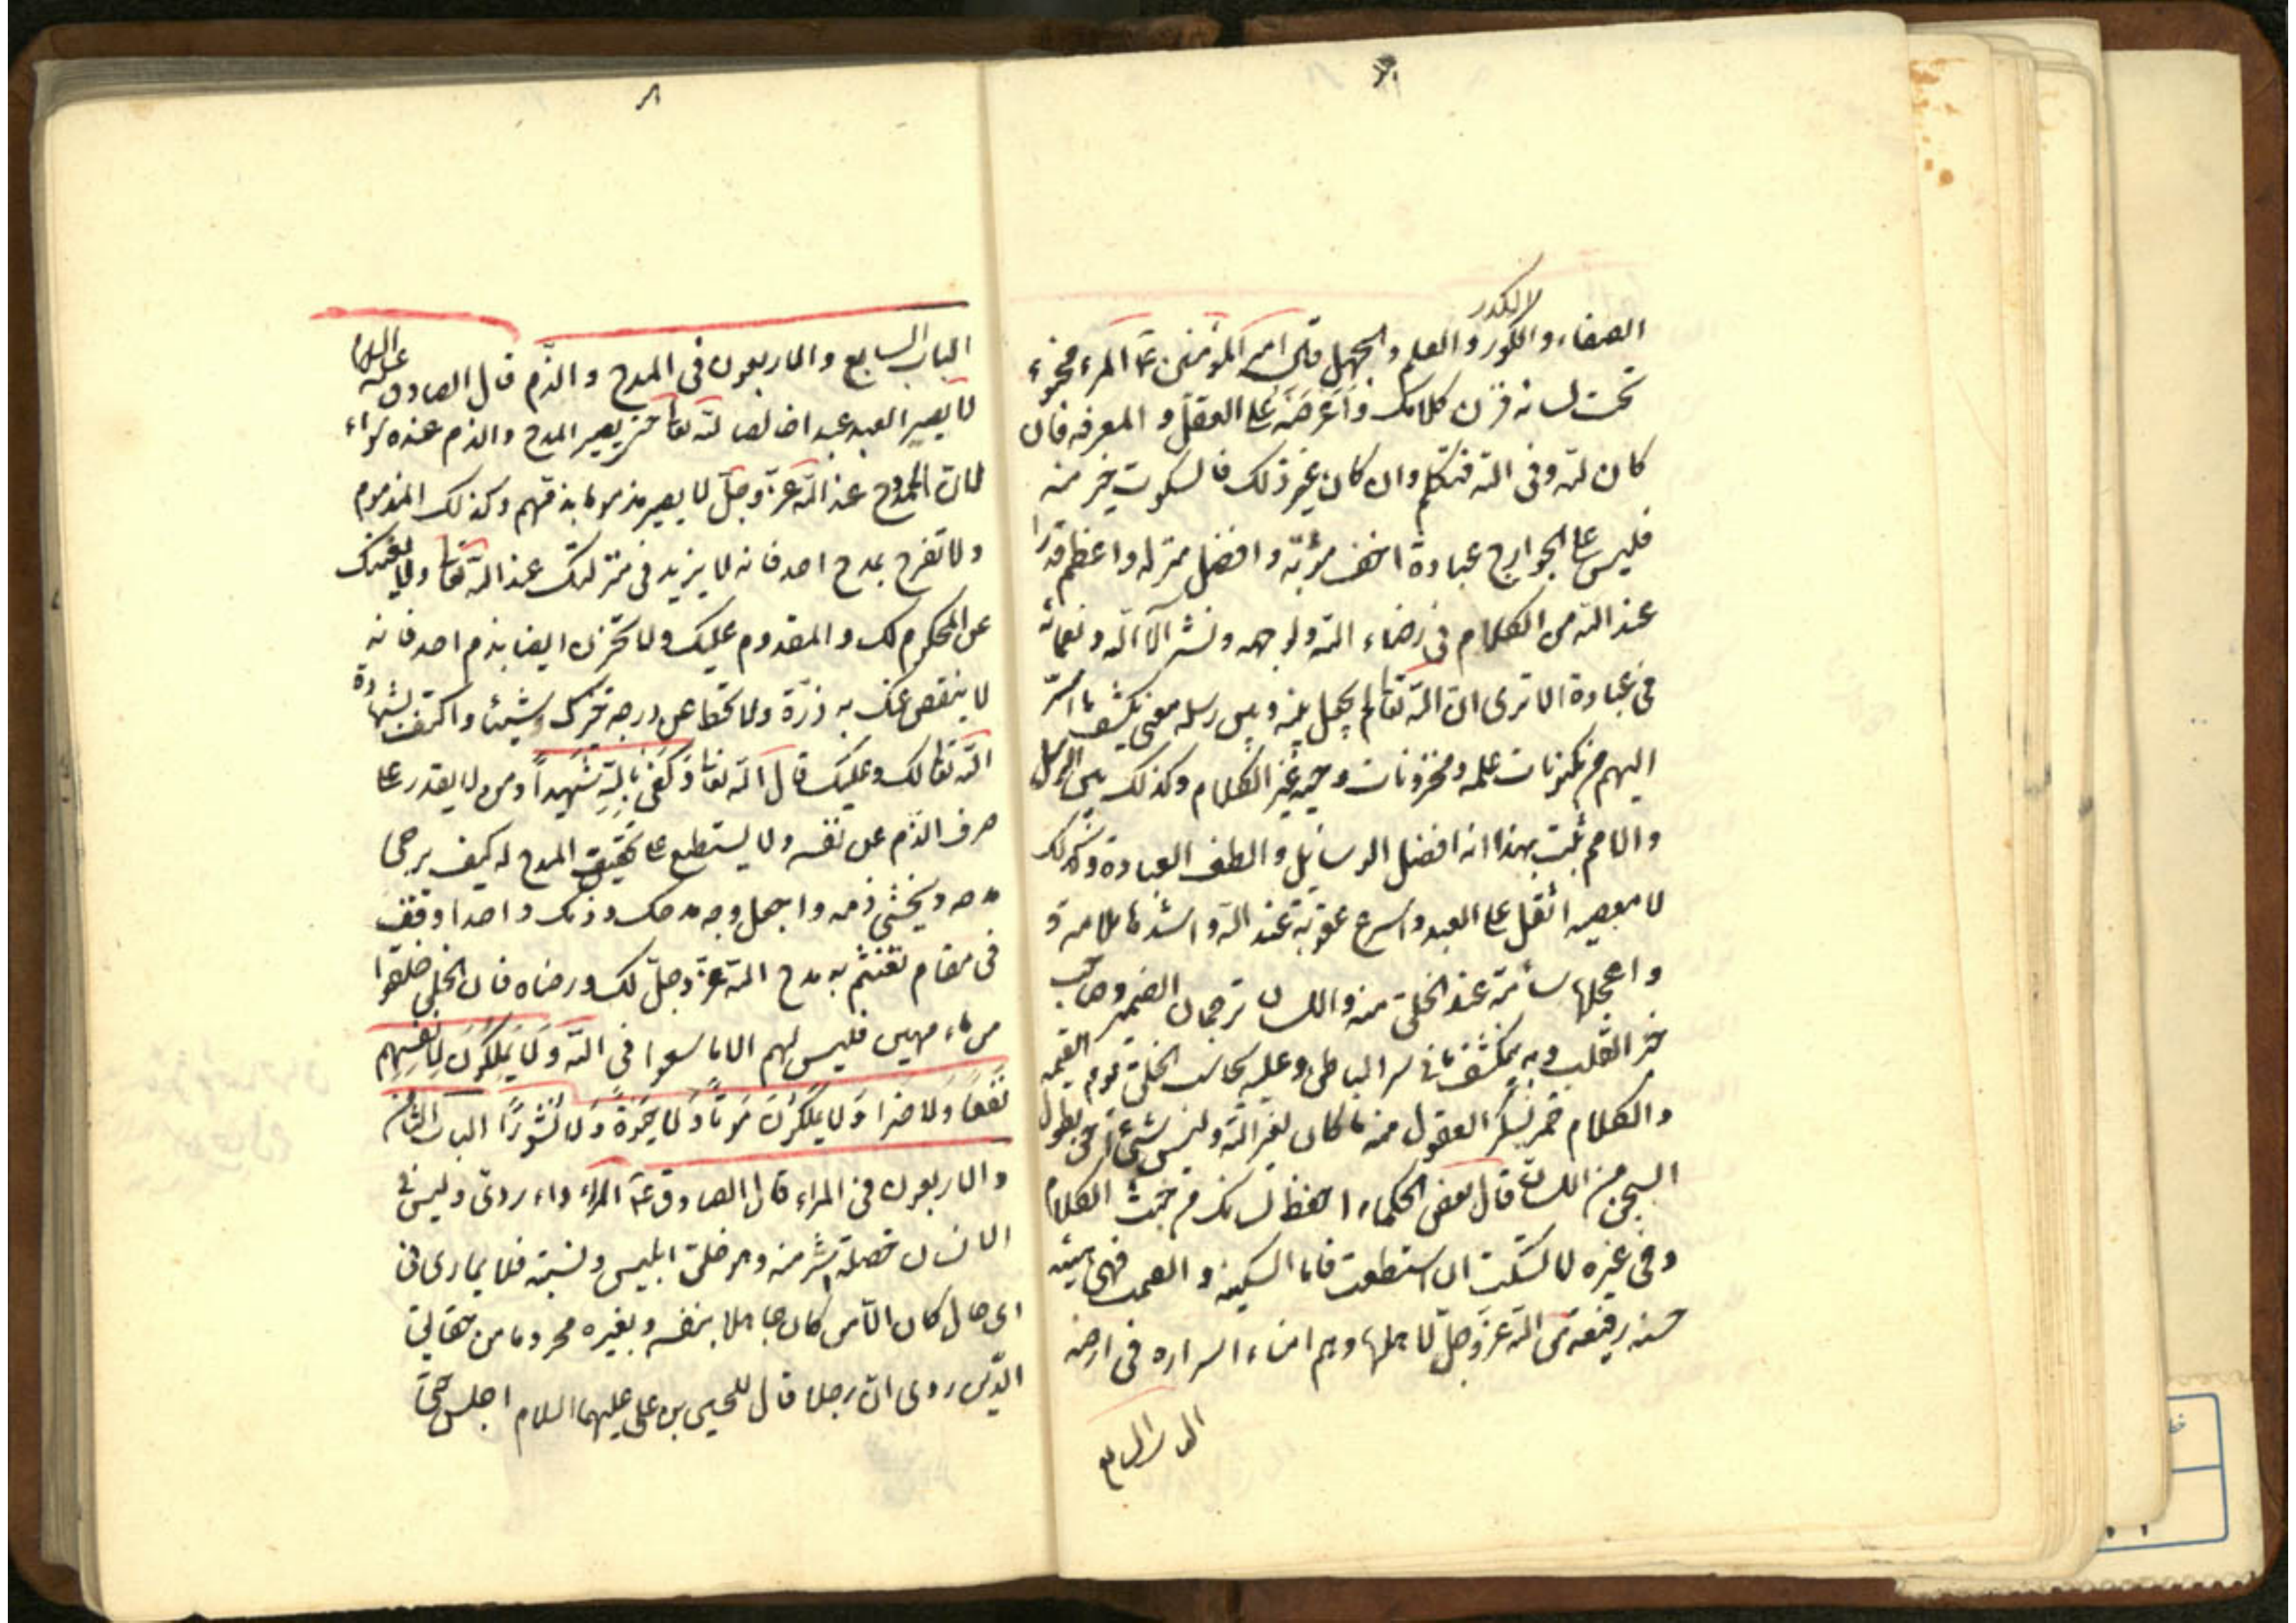 لا الكدر
الصفاء والكدر والعلم والجهل قال امير المؤمنين ع المرء مخبوء
تحت لسانه فزن كلامك واعرضه على العقل والمعرفه فان
كان لله وفى الله فتكلم وان كان غير ذلك فالسكوت خير منه
فليس على الجوارح عبادة اخف مؤنة وافضل منزله واعظم قدرا
عند الله من الكلام فى رضاء الله ولوجهه ونشر آلائه ونعمائه
فى عباده الا ترى ان الله تعالى لم يجعل بينه وبين رسله معنى يكشف ما اسر
اليهم من مكنونات علمه ومخزونات وحيه غير الكلام وكذلك بين الرسل
والامم ثبت بهذا انه افضل الوسائل والطف العبادة وكذلك
لا معصية اثقل على العبد واسرع عقوبة عند الله واشدها ملامة و
واعجلها سأمة عند الخلق منه واللسان ترجمان الضمير وصاحب
خبر القلب وبه ينكشف ما فى سر الباطن وعليه يحاسب الخلق يوم القيمة
والكلام خمر يسكر العقول منه ما كان لغير الله وليس شئ احق بطول
السجن من اللسان قال بعض الحكماء احفظ لسانك من خبث الكلام
وفى غيره لا تسكت ان استطعت فاما السكينه والصمت فهى هيئة
حسنه رفيعة من الله عز وجل لاهلها وهم امناء اسراره فى ارضه
الباب السابع
الباب السابع والاربعون فى المدح والذم قال الصادق عليه السلام
لا يصير العبد عبدا خالصا لله تعالى حتى يصير المدح والذم عنده سواء
لان الممدوح عند الله عز وجل لا يصير مذموما بذمهم وكذلك المذموم
ولا تفرح بمدح احد فانه لا يزيد فى منزلتك عند الله تعالى ولا يغنيك
عن المحكوم لك والمقدوم عليك ولا تحزن ايضا بذم احد فانه
لا ينقص عنك به ذرة ولا يحط عن درجه خيرك شيئا واكتف بشهادة
الله تعالى لك وعليك قال الله تعالى وَكَفَىٰ بِاللهِ شَهِيداً ومن لا يقدر على
صرف الذم عن نفسه ولا يستطيع على تحقيق المدح له كيف يرجى
مدحه ويخشى ذمه واجعل وجه مدحك وذمك واحدا وقف
فى مقام تغتنم به مدح الله عز وجل لك ورضاه فان الخلق خلقوا
من ماء مهين فليس لهم الا ما سعوا فى الله وَلَا يَمْلِكُونَ لِأَنْفُسِهِمْ
نَفْعاً وَلا ضَرا وَلا يَمْلِكُونَ مَوْتاً وَلَا حَيٰوةً وَلَا نُشُوراً الباب الثامن
والاربعون فى المراء قال الصادق ع المراء داء ردى وليس فى
الانسان خصلة اشر منه وهو خلق ابليس ونسبته فلا يمارى فى
اى حال كان الا من كان جاهلا بنفسه وبغيره محروما من حقايق
الدين روى ان رجلا قال للحسين بن على عليهما السلام اجلس حتى